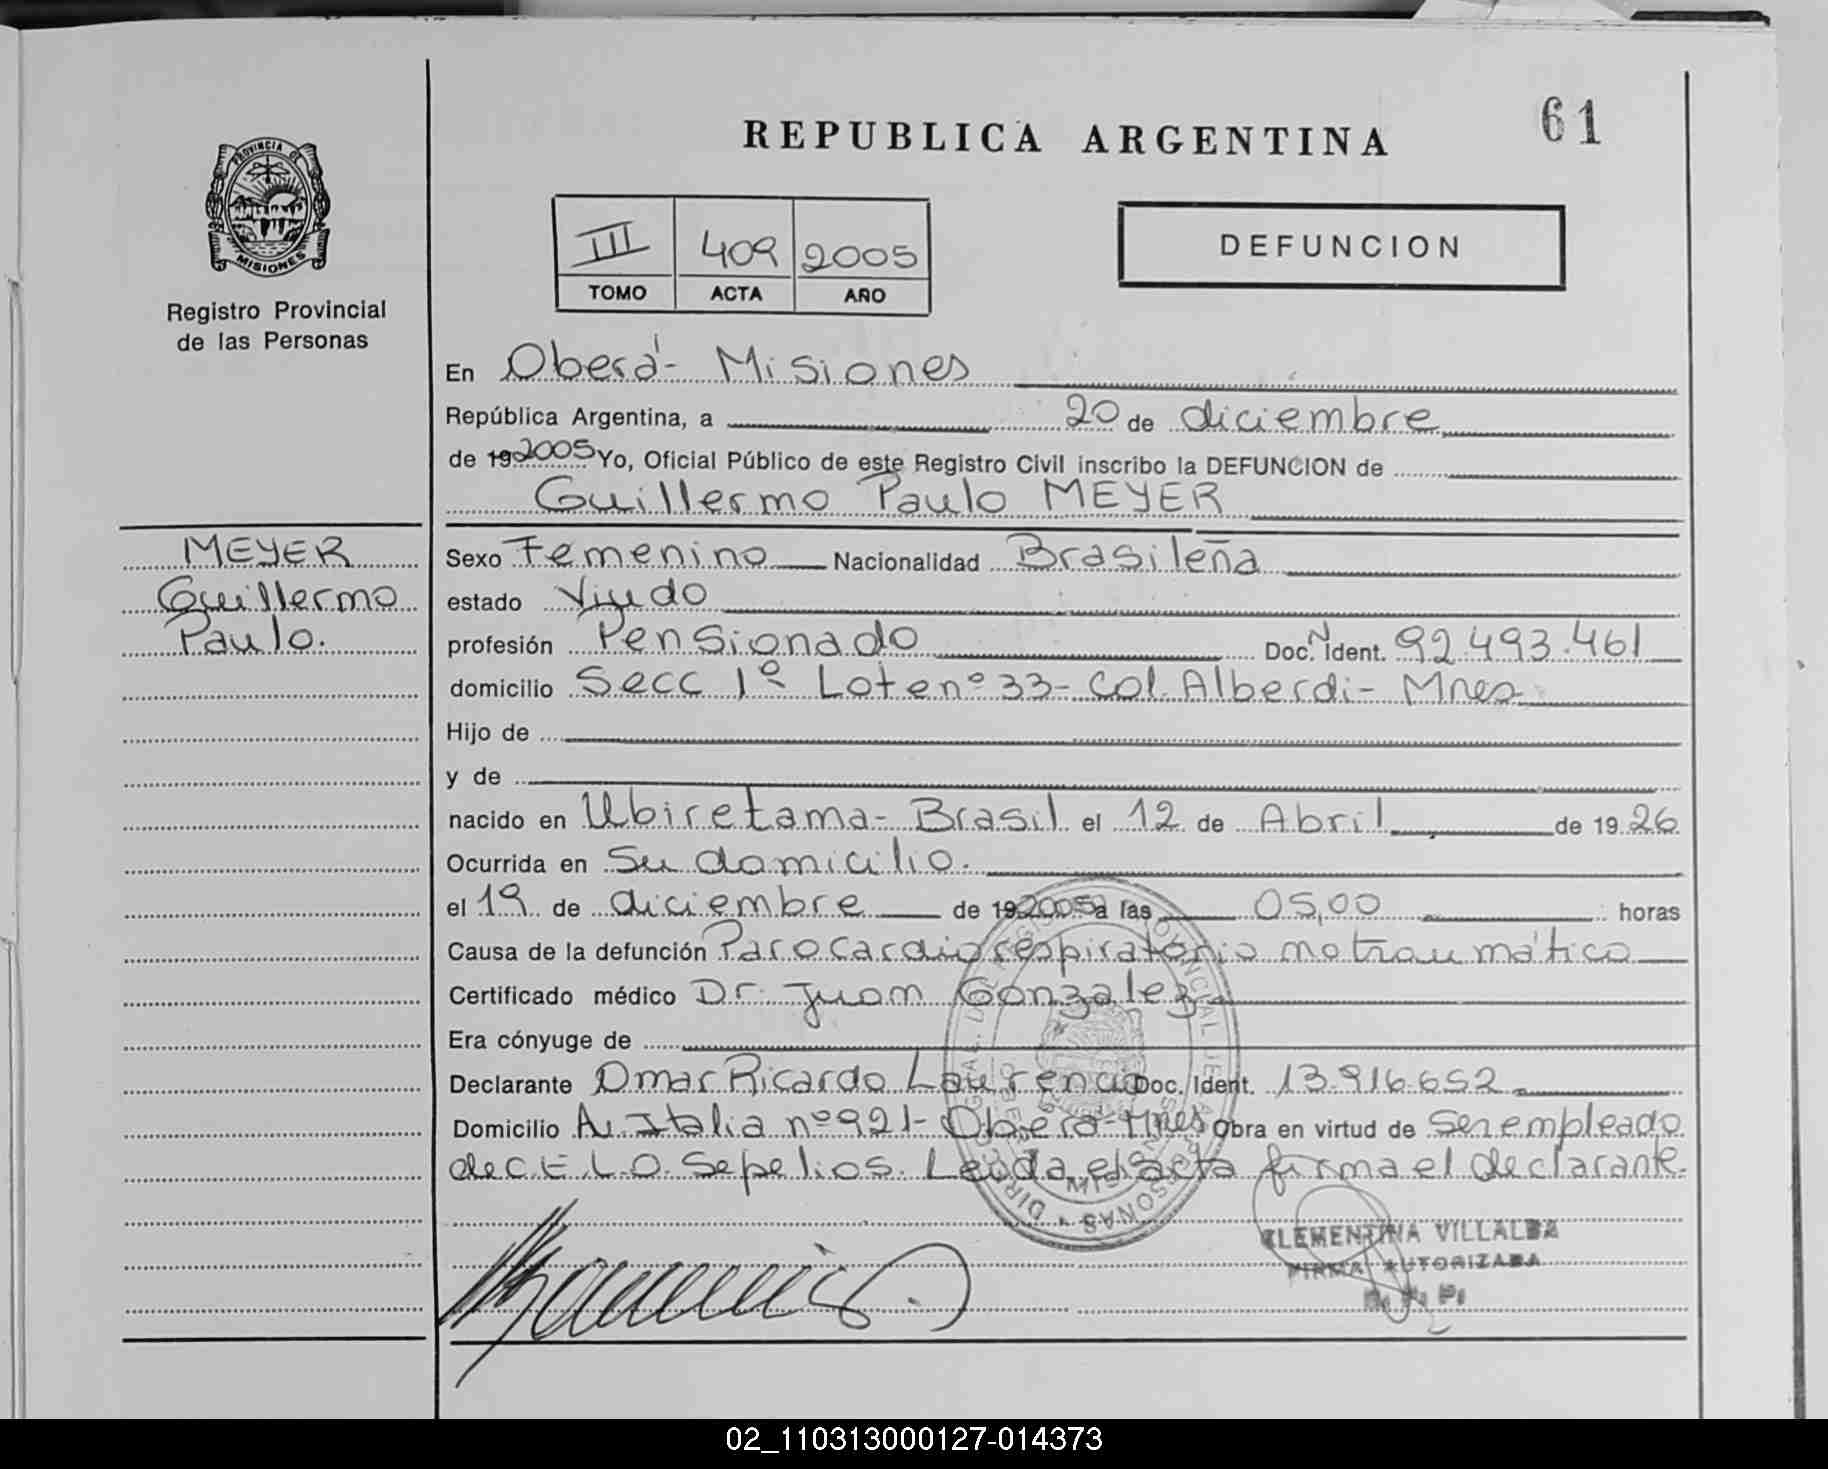 61
REPUBLICA ARGENTINA
PROVINCIA DE
MISIONES
Registro Provincial
de las Personas
III 409 2005
TOMO ACTA AÑO
DEFUNCION
En Oberá - Misiones
República Argentina, a 20 de diciembre
de 19 2005 Yo, Oficial Público de este Registro Civil inscribo la DEFUNCION de
Guillermo Paulo MEYER
MEYER
Guillermo
Paulo.
Sexo Femenino Nacionalidad Brasileña
estado Viudo
profesión Pensionado Doc. N Ident. 92.493.461
domicilio Secc 1º Lote nº 33- Col. Alberdi- Mnes
Hijo de
y de
nacido en Ubiretama- Brasil el 12 de Abril de 19 26
Ocurrida en Su domicilio.
el 19 de diciembre de 19 2005 a las 05,00 horas
Causa de la defunción Paro cardio respiratorio no traumático
Certificado médico Dr. Juan Gonzalez
Era cónyuge de
Declarante Omar Ricardo Laurencio Doc. Ident. 13.916.652
Domicilio Av. Italia nº 921- Oberá- Mnes Obra en virtud de ser empleado
de C.E.L.O. Sepelios. Leída el acta firma el declarante.
CLEMENTINA VILLALBA
FIRMA AUTORIZADA
R. P. P.
02_110313000127-014373